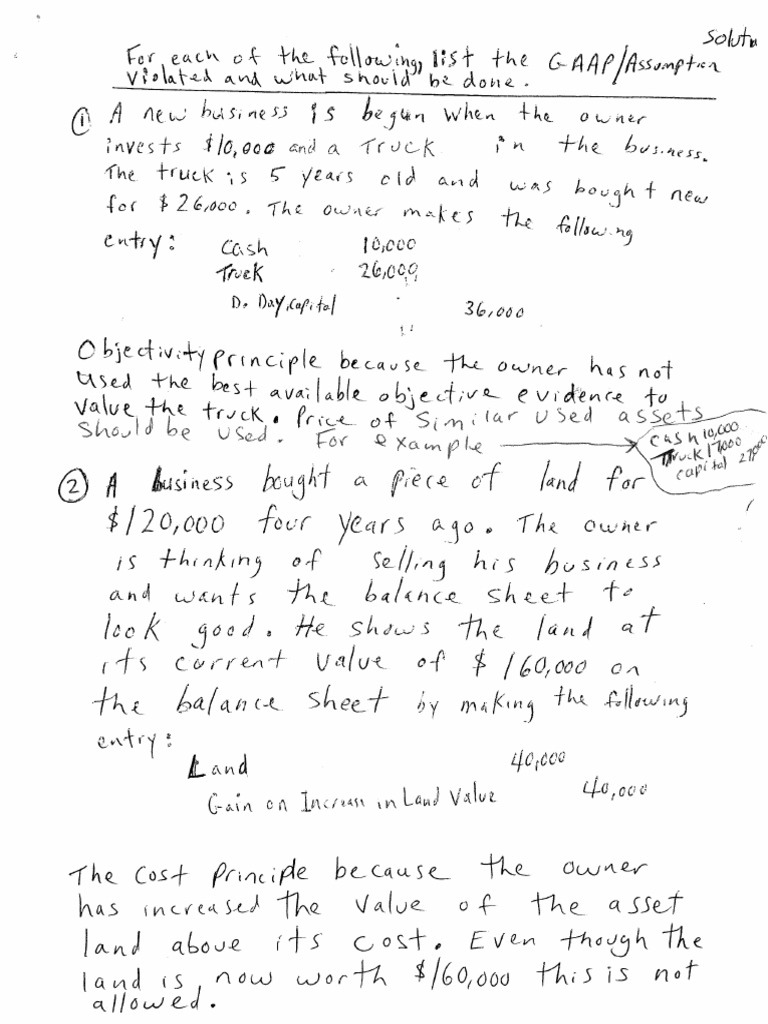 Solutn
For each of the following, list the GAAP/Assumption
Violated and what should be done.
① A new business is begun when the owner
invests $10,000 and a Truck in the business.
The truck is 5 years old and was bought new
for $26,000. The owner makes the following
entry: Cash 10,000
Truck 26,000
D. Day, Capital 36,000
Objectivity principle because the owner has not
used the best available objective evidence to
value the truck. Price of Similar used assets
should be used. For example
Cash 10,000
Truck 17,000
capital 27,000
② A business bought a piece of land for
$120,000 four years ago. The owner
is thinking of selling his business
and wants the balance sheet to
look good. He shows the land at
its current value of $160,000 on
the balance sheet by making the following
entry:
Land 40,000
Gain on Increase in Land Value 40,000
The Cost Principle because the owner
has increased the value of the asset
land above its cost. Even though the
land is now worth $160,000 this is not
allowed.